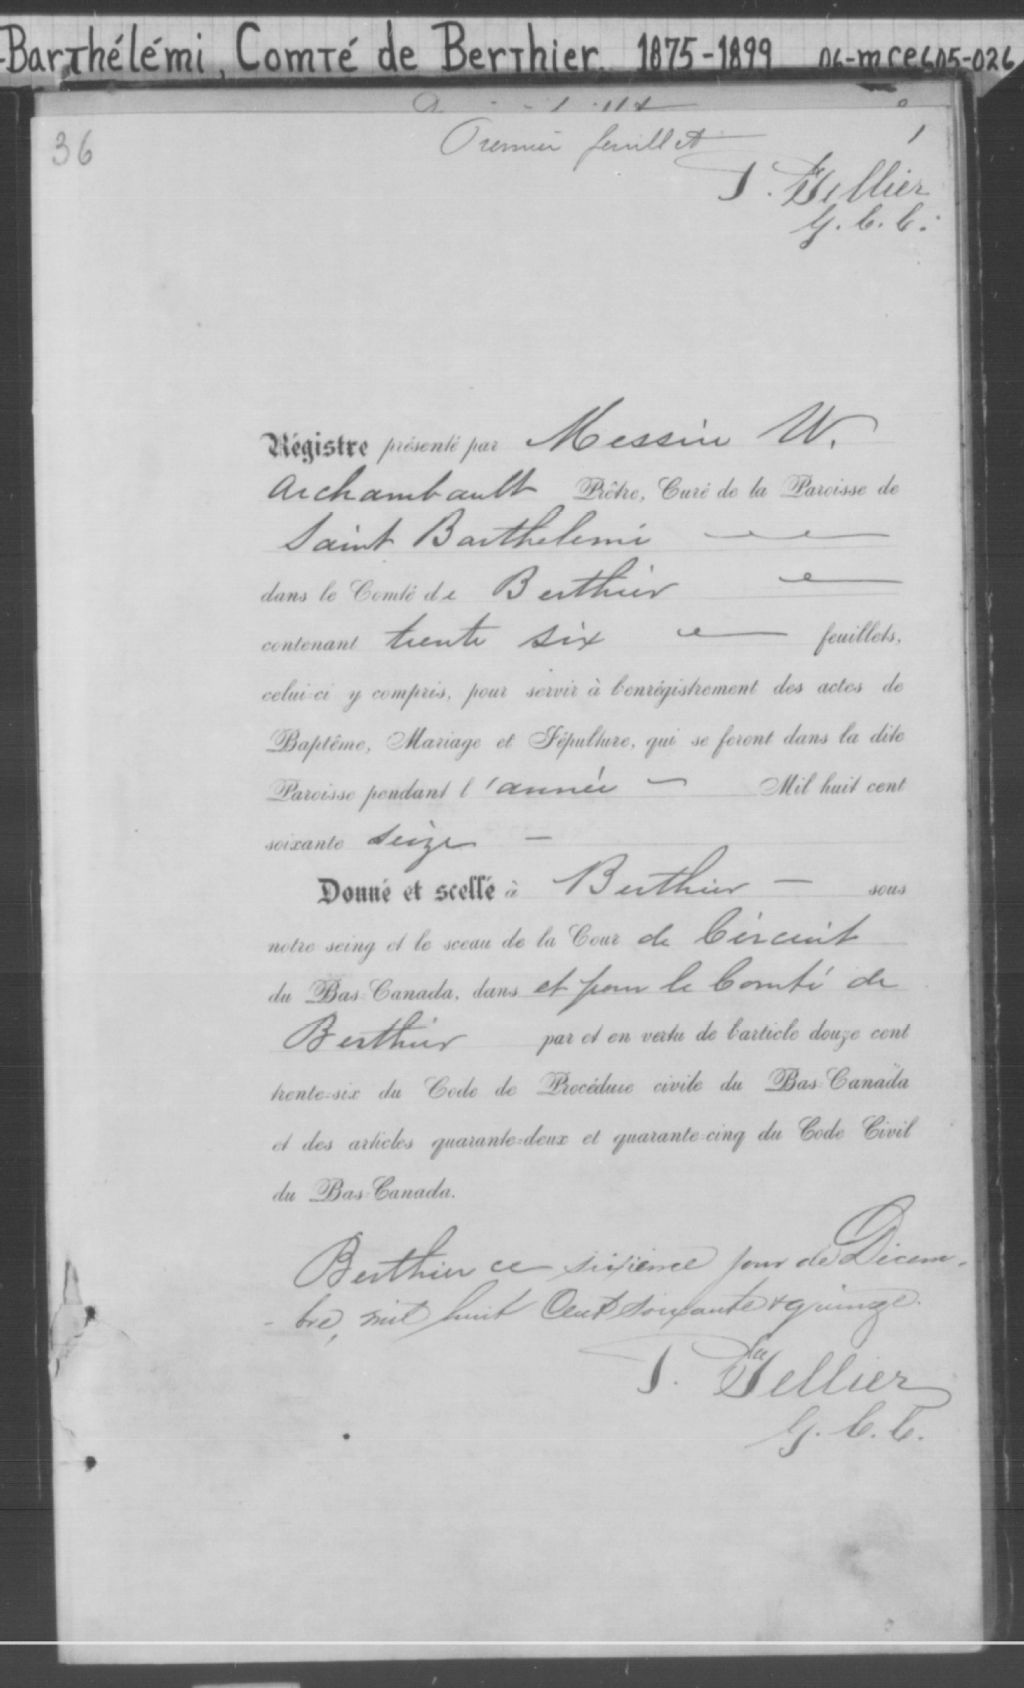 -Barthélémi, Comté de Berthier. 1875-1899 06-mce605-026
36
Premier feuillet
1
Tellier
G. C. C.
Régistre présenté par Messire W.
Archambault Prêtre, Curé de la Paroisse de
Saint Barthelemi
dans le Comté de Berthier
contenant trente six feuillets,
celui-ci y compris, pour servir à l'enrégistrement des actes de
Baptême, Mariage et Sépulture, qui se feront dans la dite
Paroisse pendant l'année - Mil huit cent
soixante seize -
Donné et scellé à Berthier - sous
notre seing et le sceau de la Cour de Circuit
du Bas-Canada, dans et pour le Comté de
Berthier par et en vertu de l'article douze cent
trente-six du Code de Procédure civile du Bas-Canada
et des articles quarante-deux et quarante-cinq du Code Civil
du Bas-Canada.
Berthier ce sixième jour de Décem-
- bre, mil huit Cent soixante & quinze.
Tellier
G. C. C.